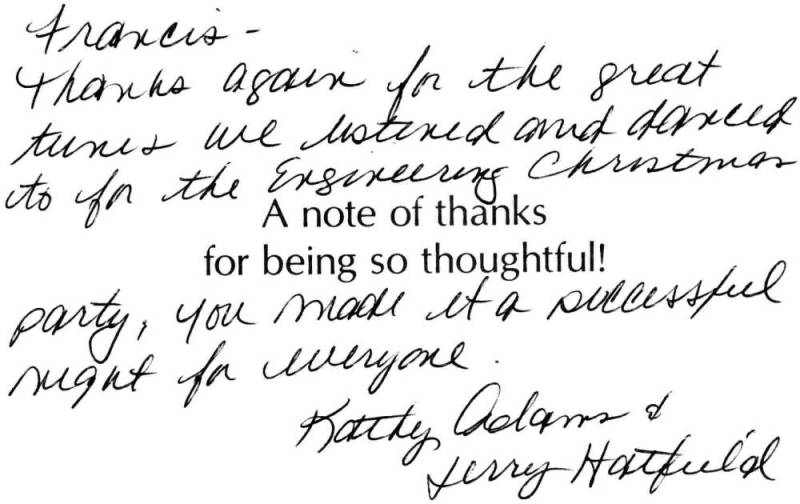 Francis -
Thanks again for the great
tunes we listened and danced
to for the Engineering Christmas
A note of thanks
for being so thoughtful!
party, you made it a successful
night for everyone.
Kathy Adams &
Jerry Hatfield